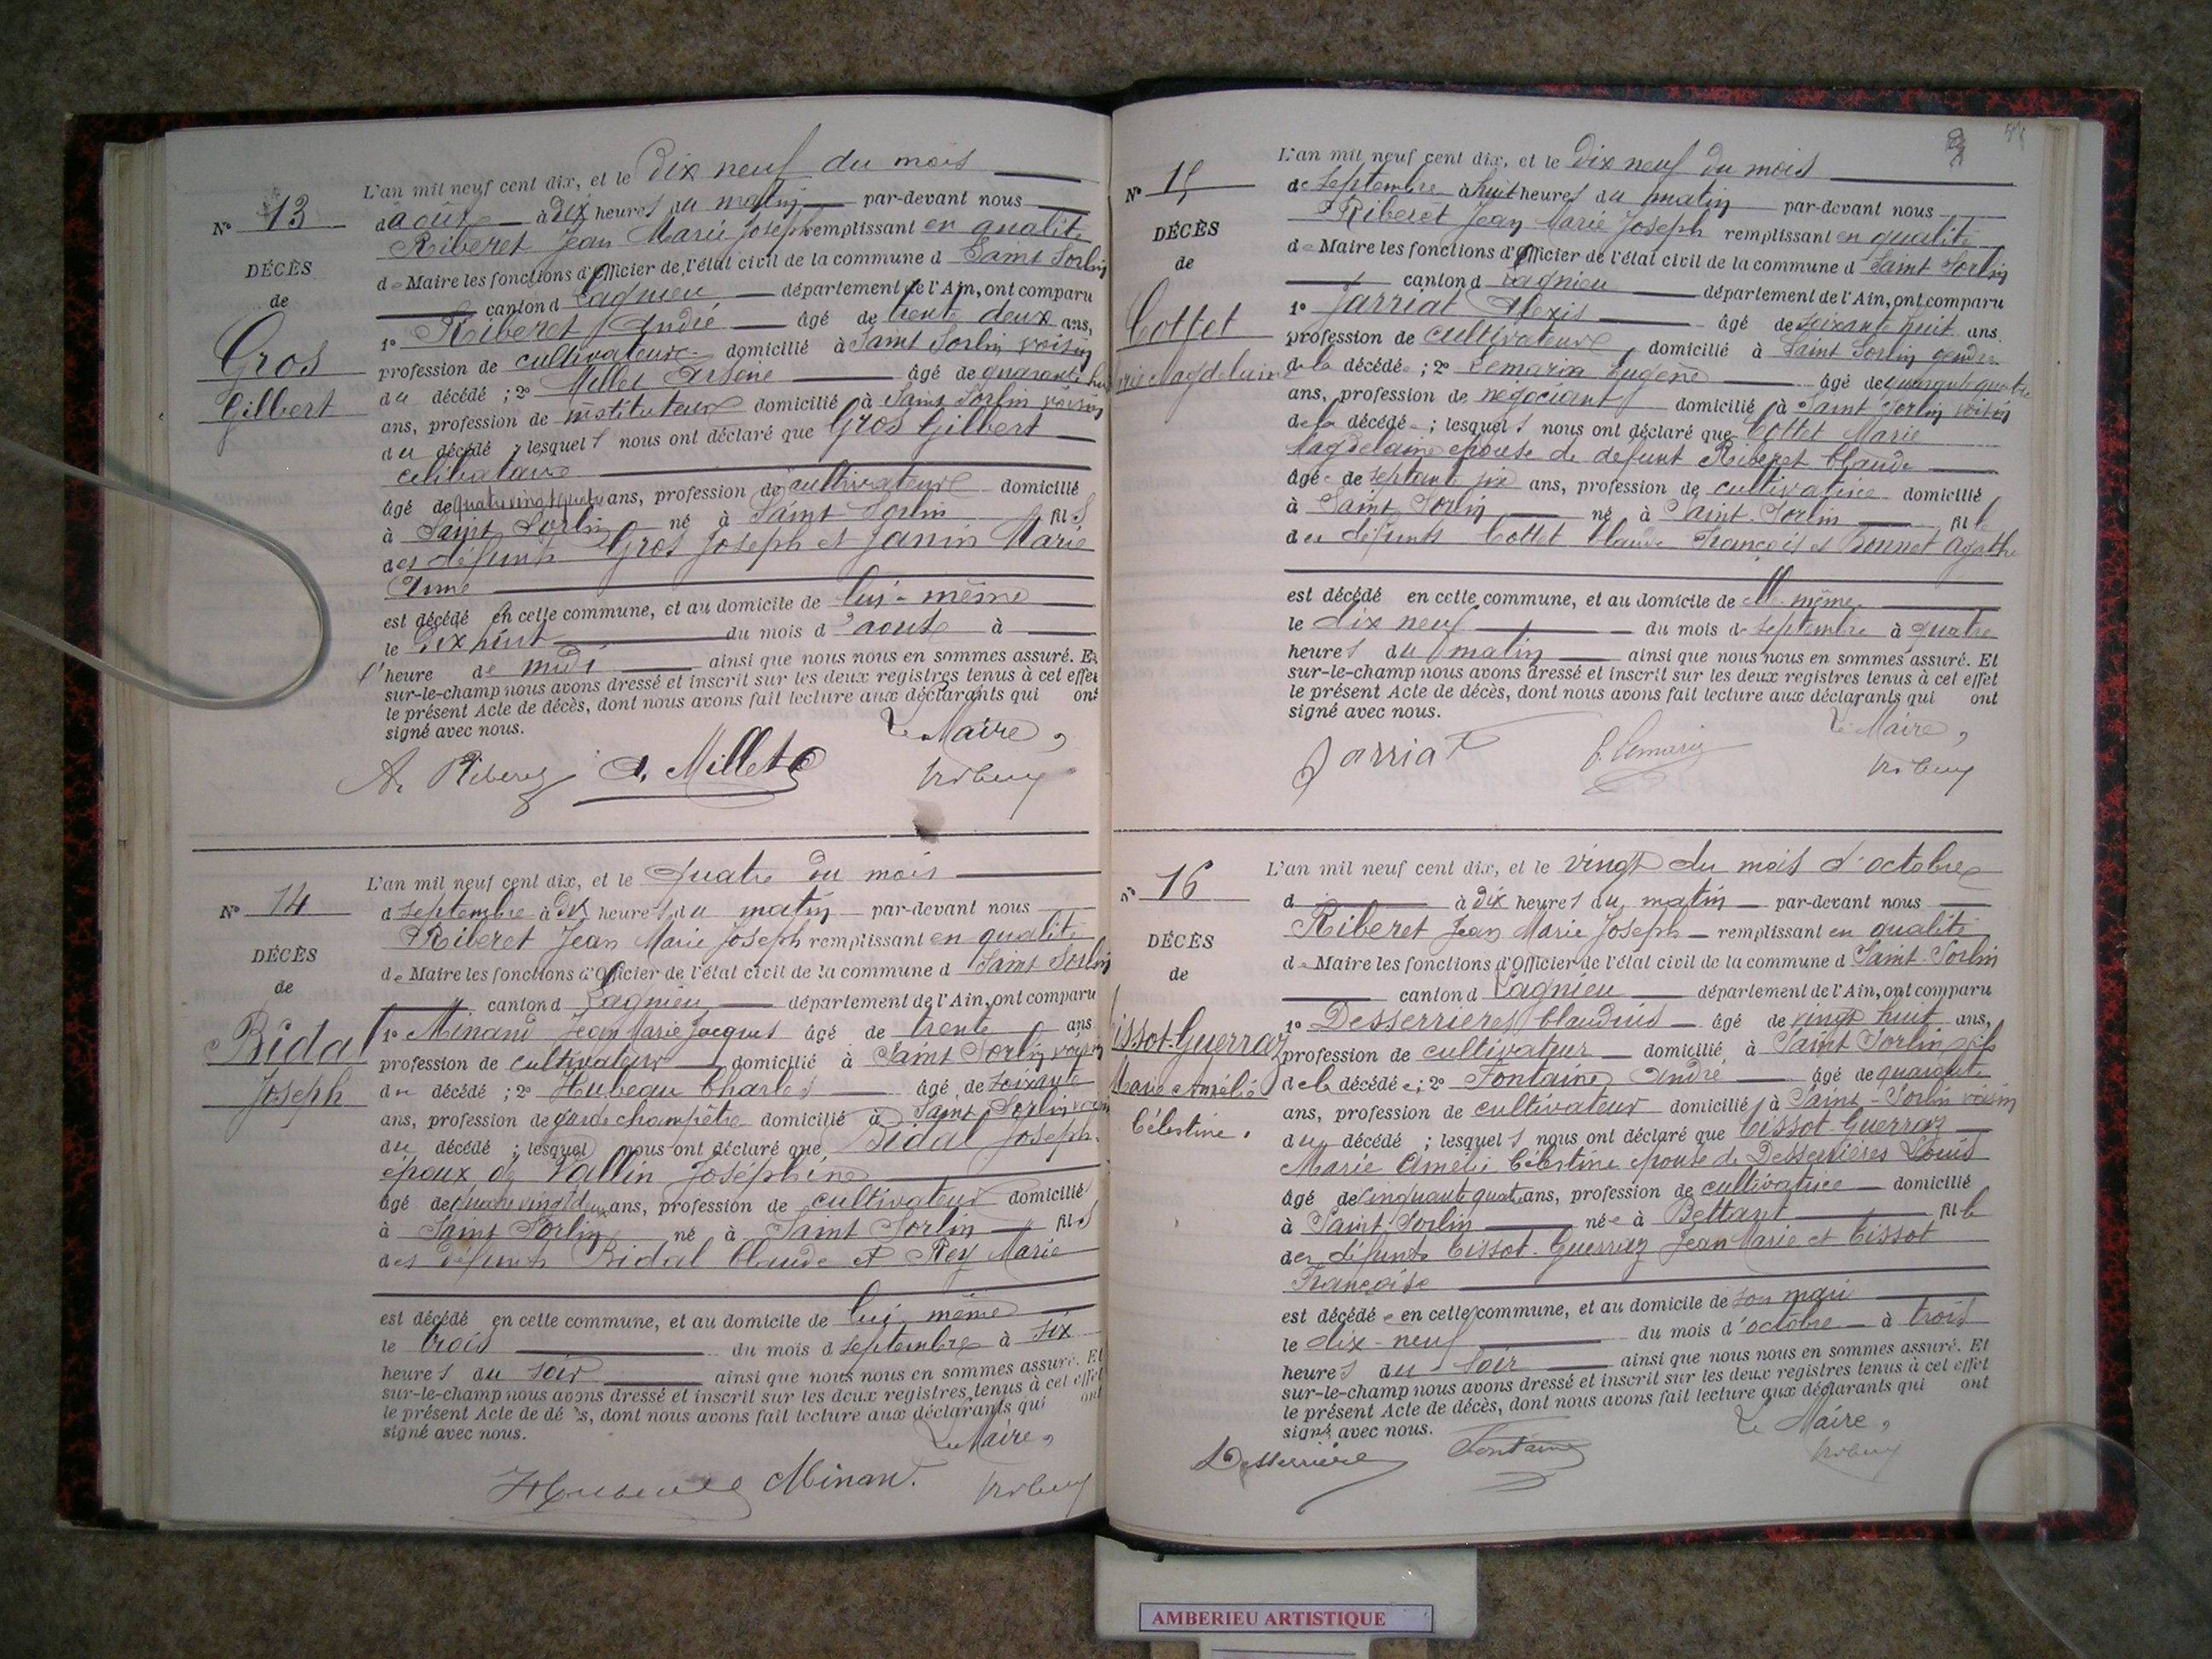 L'an mil neuf cent dix, et le Dix neuf du mois
N° 13
d'août à Dix heures du matin par-devant nous
Riberet Jean Marie Joseph remplissant en qualité
DÉCÈS
de Maire les fonctions d'Officier de l'état civil de la commune d Saint Sorlin
de
canton d Lagnieu département de l'Ain, ont comparu
1° Riberet André âgé de trente deux ans,
Gros
profession de cultivateur domicilié à Saint Sorlin voisin
du décédé ; 2° Millet Arsène âgé de quarante
Gilbert
ans, profession de instituteur domicilié à Saint Sorlin voisin
du décédé ; lesquels nous ont déclaré que Gros Gilbert
célibataire
âgé de ans, profession de cultivateur domicilié
à Saint Sorlin né à Saint Sorlin fils
des défunts Gros Joseph et Janin Marie
Anne
est décédé en cette commune, et au domicile de lui-même
le Dix huit du mois d'aout à
l'heure de midi ainsi que nous nous en sommes assuré. Et
sur-le-champ nous avons dressé et inscrit sur les deux registres tenus à cet effet
le présent Acte de décès, dont nous avons fait lecture aux déclarants qui ont
signé avec nous.
Le Maire,
A. Riberet A. Millet
L'an mil neuf cent dix, et le Quatre du mois
N° 14
d septembre à Dix heures du matin par-devant nous
Riberet Jean Marie Joseph remplissant en qualité
DÉCÈS
de Maire les fonctions d'Officier de l'état civil de la commune d Saint Sorlin
de
canton d Lagnieu département de l'Ain, ont comparu
1° Minand Jean Marie Jacques âgé de trente ans
Bidal
profession de cultivateur domicilié à Saint Sorlin voisin
Joseph
du décédé ; 2° Hubeau Charles âgé de soixante
ans, profession de garde champêtre domicilié à Saint Sorlin voisin
du décédé ; lesquel nous ont déclaré que Bidal Joseph
époux de Vallin Joséphine
âgé de quatre vingt deux ans, profession de cultivateur domicilié
à Saint Sorlin né à Saint Sorlin fils
des défunts Bidal Claude et Rey Marie
est décédé en cette commune, et au domicile de lui même
le trois du mois d septembre à six
heures du soir ainsi que nous nous en sommes assuré. Et
sur-le-champ nous avons dressé et inscrit sur les deux registres tenus à cet effet
le présent Acte de dé s, dont nous avons fait lecture aux déclarants qui ont
signé avec nous.
Le Maire,
Minand.
L'an mil neuf cent dix, et le Dix neuf du mois
N° 15
de septembre à huit heures du matin par-devant nous
Riberet Jean Marie Joseph remplissant en qualité
DÉCÈS
de Maire les fonctions d'Officier de l'état civil de la commune d Saint Sorlin
de
canton d Lagnieu département de l'Ain, ont comparu
1° Jarriat Alexis âgé de soixante huit ans
Cottet
profession de cultivateur domicilié à Saint Sorlin gendre
rie Magdelaine
de la décédée ; 2° Lemarin Eugène âgé de quarante quatre
ans, profession de négociant domicilié à Saint Sorlin voisin
de la décédée ; lesquels nous ont déclaré que Cottet Marie
Magdelaine épouse de défunt Riberet Claude
âgée de septante six ans, profession de cultivatrice domicilié
à Saint Sorlin né à Saint-Sorlin fille
des défunts Cottet Claude François et Bonnet Agathe
est décédé en cette commune, et au domicile de Elle même
le dix neuf du mois de septembre à quatre
heures du matin ainsi que nous nous en sommes assuré. Et
sur-le-champ nous avons dressé et inscrit sur les deux registres tenus à cet effet
le présent Acte de décès, dont nous avons fait lecture aux déclarants qui ont
signé avec nous.
Le Maire,
Jarriat E. Lemarin
L'an mil neuf cent dix, et le vingt du mois d'octobre
N° 16
d à dix heures du matin par-devant nous
Riberet Jean Marie Joseph remplissant en qualité
DÉCÈS
de Maire les fonctions d'Officier de l'état civil de la commune d Saint-Sorlin
de
canton d Lagnieu département de l'Ain, ont comparu
1° Desserrières Claudius âgé de vingt huit ans,
issot-Guerraz
profession de cultivateur domicilié à Saint Sorlin fils
Marie Amélie
de la décédée ; 2° Fontaine André âgé de quarante
ans, profession de cultivateur domicilié à Saint-Sorlin voisin
Célestine.
du décédé ; lesquels nous ont déclaré que Cissot-Guerraz
Marie Amélie Célestine épouse de Desserrières Louis
âgé de cinquante quatre ans, profession de cultivatrice domicilié
à Saint-Sorlin née à Bettant fille
des défunts Cissot-Guerraz Jean Marie et Cissot
Françoise
est décédée en cette commune, et au domicile de son mari
le dix-neuf du mois d'octobre à trois
heures du soir ainsi que nous nous en sommes assuré. Et
sur-le-champ nous avons dressé et inscrit sur les deux registres tenus à cet effet
le présent Acte de décès, dont nous avons fait lecture aux déclarants qui ont
signé avec nous.
Le Maire,
Desserrière Fontaine
AMBERIEU ARTISTIQUE